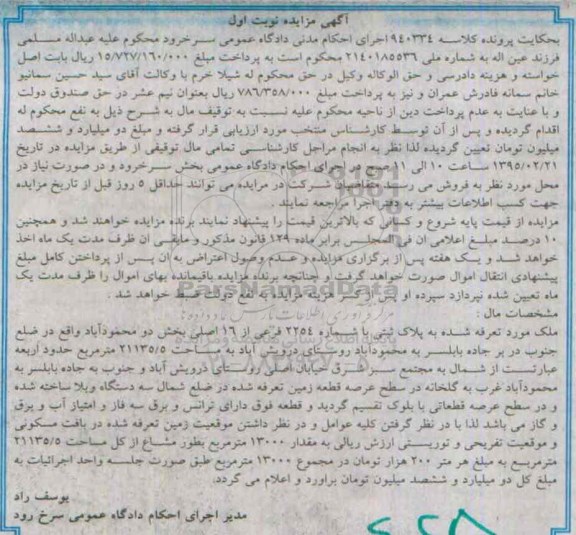 آگهی مزایده نوبت اول
بحکایت پرونده کلاسه ۹۴۰۳۳۴ اجرای احکام مدنی دادگاه عمومی سرخرود محکوم علیه عبداله مسلمی
فرزند عین اله به شماره ملی ۲۱۴۰۱۸۵۵۳۶ محکوم است به پرداخت مبلغ ۱۵/۷۲۷/۱۶۰/۰۰۰ ریال بابت اصل
خواسته و هزینه دادرسی و حق الوکاله وکیل در حق محکوم له شیلا خرم با وکالت آقای سید حسین سمانیو
خانم سمانه فادرش عمران و نیز به پرداخت مبلغ ۷۸۶/۳۵۸/۰۰۰ ریال بعنوان نیم عشر در حق صندوق دولت
و با عنایت به عدم پرداخت دین از ناحیه محکوم علیه نسبت به توقیف مال به شرح ذیل به نفع محکوم له
اقدام گردیده و پس از آن توسط کارشناس منتخب مورد ارزیابی قرار گرفته و مبلغ دو میلیارد و ششصد
میلیون تومان تعیین گردیده لذا نظر به انجام مراحل کارشناسی تمامی مال توقیفی از طریق مزایده در تاریخ
۱۳۹۵/۰۲/۲۱ ساعت ۱۰ الی ۱۱ در اجرای احکام دادگاه عمومی بخش سرخرود و در صورت نیاز در
محل مورد نظر به فروش می رسد متقاضیان شرکت در مزایده می توانند حداقل ۵ روز قبل از تاریخ مزایده
جهت کسب اطلاعات بیشتر به دفتر اجرا مراجعه نمایند .
مزایده از قیمت پایه شروع و کسانی که بالاترین قیمت را پیشنهاد نمایند برنده مزایده خواهند شد و همچنین
۱۰ درصد مبلغ اعلامی ان فی المجلس برابر ماده ۱۲۹ قانون مذکور و مابقی ان ظرف مدت یک ماه اخذ
خواهد شد و یک هفته پس از برگزاری مزایده و عدم وصول اعتراض به ان پس از پرداختن کامل مبلغ
پیشنهادی انتقال اموال صورت خواهد گرفت و چنانچه برنده مزایده باقیمانده بهای اموال را ظرف مدت یک
ماه تعیین شده نپردازد سپرده او پس از کسر هزینه مزایده به نفع دولت ضبط خواهد شد .
مشخصات مال :
ملک مورد تعرفه شده به پلاک ثبتی با شماره ۲۲۵۴ فرعی از ۱۶ اصلی بخش دو محمودآباد واقع در ضلع
جنوب در بر جاده بابلسر به محمودآباد روستای درویش آباد به مساحت ۲۱۱۳۵/۵ مترمربع حدود اربعه
عبارتست از شمال به مجتمع شرق خیابان اصلی روستای درویش آباد و جنوب به جاده بابلسر به
محمودآباد غرب به گلخانه در سطح عرصه قطعه زمین تعرفه شده در ضلع شمال سه دستگاه ویلا ساخته شده
و در سطح عرصه قطعاتی با بلوک تقسیم گردید و قطعه فوق دارای ترانس و برق سه فاز و امتیاز آب و برق
و گاز می باشد لذا با در نظر گرفتن کلیه عوامل و در نظر داشتن موقعیت زمین تعرفه شده در بافت مسکونی
و موقعیت تفریحی و توریستی ارزش ریالی به مقدار ۱۳۰۰۰ مترمربع بطور مشاع از کل مساحت ۲۱۱۳۵/۵
مترمربع به مبلغ هر متر ۲۰۰ هزار تومان در مجموع ۱۳۰۰۰ مترمربع طبق صورت جلسه واحد اجرائیات به
مبلغ کل دو میلیارد و ششصد میلیون تومان براورد و اعلام می گردد.
یوسف راد
مدیر اجرای احکام دادگاه عمومی سرخ رود
ParsNamadData